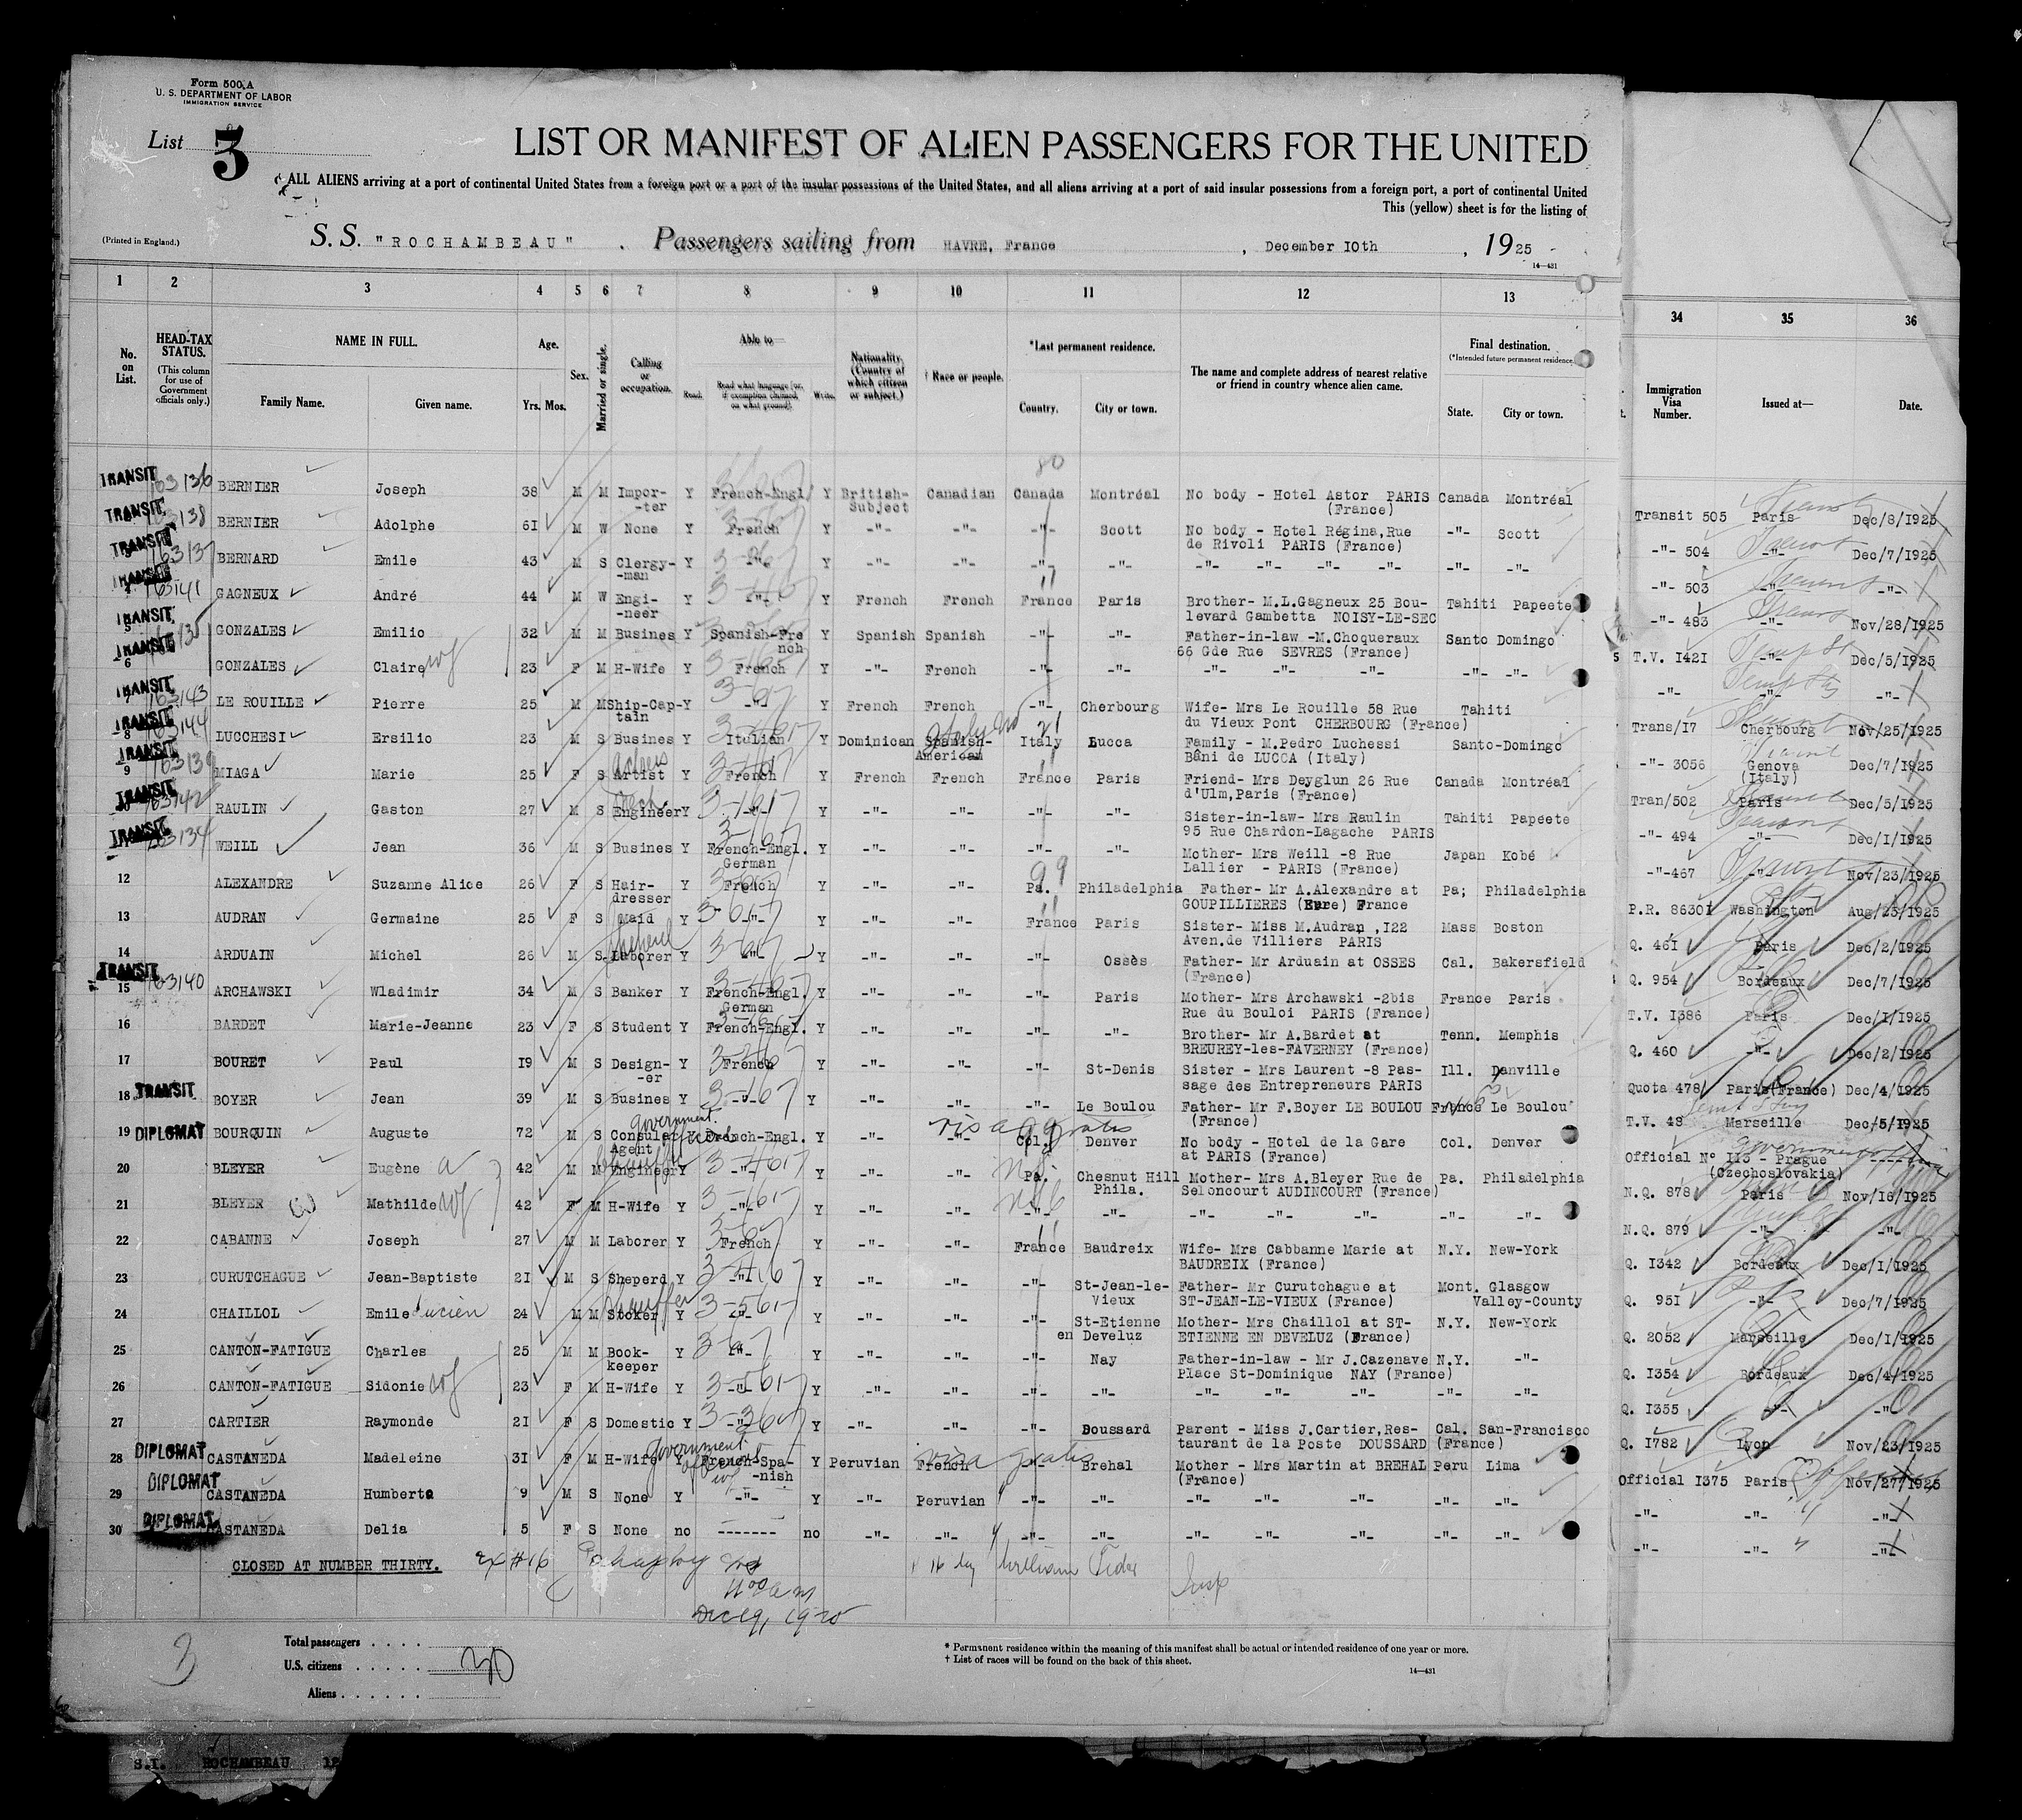 Form 500 A
U. S. DEPARTMENT OF LABOR
IMMIGRATION SERVICE
List 3
LIST OR MANIFEST OF ALIEN PASSENGERS FOR THE UNITED
ALL ALIENS arriving at a port of continental United States from a foreign port or a port of the insular possessions of the United States, and all aliens arriving at a port of said insular possessions from a foreign port, a port of continental United
This (yellow) sheet is for the listing of
(Printed in England.)
S. S. "ROCHAMBEAU" . Passengers sailing from HAVRE, France , December 10th , 1925
14-431
1 2 3 4 5 6 7 8 9 10 11 12 13 34 35 36
No. on List.
HEAD-TAX STATUS.
(This column for use of Government officials only.)
NAME IN FULL.
Family Name. Given name.
Age.
Yrs. Mos.
Sex.
Married or single.
Calling or occupation.
Able to—
Read. Read what language (or, if exemption claimed, on what ground). Write.
Nationality. (Country of which citizen or subject.)
† Race or people.
*Last permanent residence.
Country. City or town.
The name and complete address of nearest relative or friend in country whence alien came.
Final destination.
(*Intended future permanent residence.)
State. City or town.
Immigration Visa Number.
Issued at—
Date.
TRANSIT 163136 BERNIER Joseph 38 M M Impor--ter Y French-Engl Y British-Subject Canadian Canada Montréal No body - Hotel Astor PARIS (France) Canada Montréal Transit 505 Paris Dec/8/1925
TRANSIT 138 BERNIER Adolphe 61 M W None Y French Y -"- -"- -"- Scott No body - Hotel Régina,Rue de Rivoli PARIS (France) -"- Scott -"- 504 -"- Dec/7/1925
TRANSIT 63137 BERNARD Emile 43 M S Clergy--man Y -"- Y -"- -"- -"- -"- -"- -"- -"- -"- -"- -"- -"- 503 -"- -"-
TRANSIT 4 163141 GAGNEUX André 44 M W Engi--neer Y -"- Y French French France Paris Brother- M.L.Gagneux 25 Bou-levard Gambetta NOISY-LE-SEC Tahiti Papeete -"- 483 -"- Nov/28/1925
TRANSIT 5 GONZALES Emilio 32 M M Busines Y Spanish-French Y Spanish Spanish -"- -"- Father-in-law -M.Choqueraux 66 Gde Rue SEVRES (France) Santo Domingo T.V. 1421 -"- Dec/5/1925
TRANSIT 6 GONZALES Claire wf 23 F M H-Wife Y French Y -"- French -"- -"- -"- -"- -"- -"- -"- -"- -"- -"- -"-
TRANSIT 163143 LE ROUILLE Pierre 25 M M Ship-Cap-tain Y -"- Y French French -"- Cherbourg Wife- Mrs Le Rouille 58 Rue du Vieux Pont CHERBOURG (France) Tahiti Trans/17 Cherbourg Nov/25/1925
TRANSIT 8 163144 LUCCHESI Ersilio 23 M S Busines Y Italian Y Dominican Spanish-American Italy Lucca Family - M.Pedro Luchessi Bâni de LUCCA (Italy) Santo-Domingo -"- 3056 Genova (Italy) Dec/7/1925
TRANSIT 9 163139 MIAGA Marie 25 F S Artist Y French Y French French France Paris Friend- Mrs Deyglun 26 Rue d'Ulm,Paris (France) Canada Montréal Tran/502 Paris Dec/5/1925
TRANSIT 63142 RAULIN Gaston 27 M S Engineer Y -"- Y -"- -"- -"- -"- Sister-in-law- Mrs Raulin 95 Rue Chardon-Lagache PARIS Tahiti Papeete -"- 494 -"- Dec/1/1925
TRANSIT 63134 WEILL Jean 36 M S Busines Y French-Engl. German Y -"- -"- -"- -"- Mother- Mrs Weill -8 Rue Lallier - PARIS (France) Japan Kobé -"-467 -"- Nov/23/1925
12 ALEXANDRE Suzanne Alice 26 F S Hair-dresser Y French Y -"- -"- Pa. Philadelphia Father- Mr A.Alexandre at GOUPILLIERES (Eure) France Pa; Philadelphia P.R. 86301 Washington Aug/25/1925
13 AUDRAN Germaine 25 F S Maid Y -"- Y -"- -"- France Paris Sister- Miss M.Audran ,122 Aven.de Villiers PARIS Mass Boston Q. 461 Paris Dec/2/1925
14 ARDUAIN Michel 26 M S Laborer Y -"- Y -"- -"- -"- Ossès Father- Mr Arduain at OSSES (France) Cal. Bakersfield Q. 954 Bordeaux Dec/7/1925
TRANSIT 15 63140 ARCHAWSKI Wladimir 34 M S Banker Y French-Engl. German Y -"- -"- -"- Paris Mother- Mrs Archawski -2bis Rue du Bouloi PARIS (France) France Paris T.V. 1386 Paris Dec/1/1925
16 BARDET Marie-Jeanne 23 F S Student Y French-Engl. Y -"- -"- -"- -"- Brother- Mr A.Bardet at BREUREY-les-FAVERNEY (France) Tenn. Memphis Q. 460 -"- Dec/2/1925
17 BOURET Paul 19 M S Design--er Y French Y -"- -"- -"- St-Denis Sister - Mrs Laurent -8 Pas-sage des Entrepreneurs PARIS Ill. Danville Quota 478 Paris(France) Dec/4/1925
18 TRANSIT BOYER Jean 39 M S Busines Y -"- Y -"- -"- -"- Le Boulou Father- Mr F.Boyer LE BOULOU (France) France Le Boulou T.V. 48 Marseille Dec/5/1925
19 DIPLOMAT BOURQUIN Auguste 72 M S Consular Agent government Y French-Engl. Y -"- -"- visa gratis Col. Denver No body - Hotel de la Gare at PARIS (France) Col. Denver Official N° 113 - Prague (Czechoslovakia)
20 BLEYER Eugène 42 M M Engineer Y -"- Y -"- -"- Pa. Chesnut Hill Phila. Mother- Mrs A.Bleyer Rue de Seloncourt AUDINCOURT (France) Pa. Philadelphia N.Q. 878 Paris Nov/16/1925
21 BLEYER Mathilde wf 42 F M H-Wife Y -"- Y -"- -"- -"- -"- -"- -"- -"- -"- -"- -"- N.Q. 879 -"- -"-
22 CABANNE Joseph 27 M M Laborer Y French Y -"- -"- France Baudreix Wife- Mrs Cabbanne Marie at BAUDREIX (France) N.Y. New-York Q. 1342 Bordeaux Dec/1/1925
23 CURUTCHAGUE Jean-Baptiste 21 M S Sheperd Y -"- Y -"- -"- -"- St-Jean-le-Vieux Father- Mr Curutchague at ST-JEAN-LE-VIEUX (France) Mont. Glasgow Valley-County Q. 951 -"- Dec/7/1925
24 CHAILLOL Emile Lucien 24 M M Stoker Y -"- Y -"- -"- -"- St-Etienne en Develuz Mother- Mrs Chaillol at ST-ETIENNE EN DEVELUZ (France) N.Y. New-York Q. 2052 Marseille Dec/1/1925
25 CANTON-FATIGUE Charles 25 M M Book-keeper Y -"- Y -"- -"- -"- Nay Father-in-law - Mr J.Cazenave Place St-Dominique NAY (France) N.Y. -"- Q. 1354 Bordeaux Dec/4/1925
26 CANTON-FATIGUE Sidonie wf 23 F M H-Wife Y -"- Y -"- -"- -"- -"- -"- -"- -"- -"- -"- -"- Q. 1355 -"- -"-
27 CARTIER Raymonde 21 F S Domestic Y -"- Y -"- -"- -"- Doussard Parent - Miss J.Cartier,Res-taurant de la Poste DOUSSARD (France) Cal. San-Francisco Q. 1782 Lyon Nov/23/1925
28 DIPLOMAT CASTANEDA Madeleine 31 F M H-Wife government Y French-Spa-nish Y Peruvian French visa gratis -"- Brehal Mother - Mrs Martin at BREHAL (France) Peru Lima Official 1375 Paris Nov/27/1925
29 DIPLOMAT CASTANEDA Humberto 9 M S None Y -"- Y -"- Peruvian -"- -"- -"- -"- -"- -"- -"- -"- -"- -"- -"-
30 DIPLOMAT CASTANEDA Delia 5 F S None no ------- no -"- -"- -"- -"- -"- -"- -"- -"- -"- -"- -"- -"- -"-
CLOSED AT NUMBER THIRTY.
ex #16
William
Insp
Total passengers . . . .
U.S. citizens . . . . . 30
Aliens . . . . . .
3
* Permanent residence within the meaning of this manifest shall be actual or intended residence of one year or more.
† List of races will be found on the back of this sheet.
14-431
S.I. ROCHAMBEAU 12